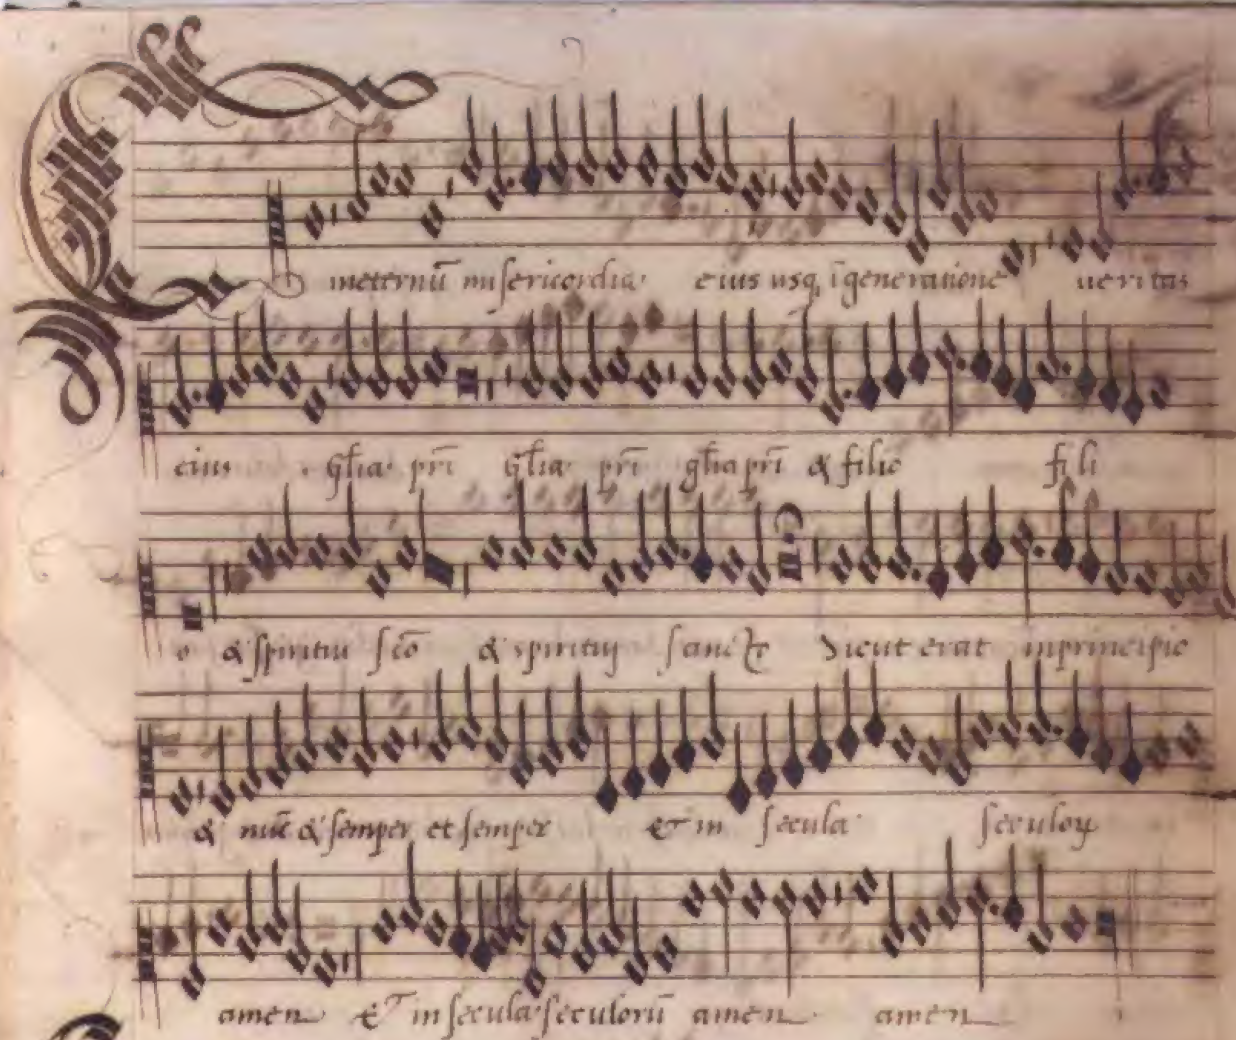 ineternū misericordia eius usq, ī generatione ueritas
eius gl̄ia pr̄i gl̄ia pr̄i gl̄ia pr̄i & filio fili
o & spiritui scō & spiritui sancto Sicut erat in principio
& nūc & semper et semper Et in secula seculoꝝ
amen Et in secula seculorū amen amen